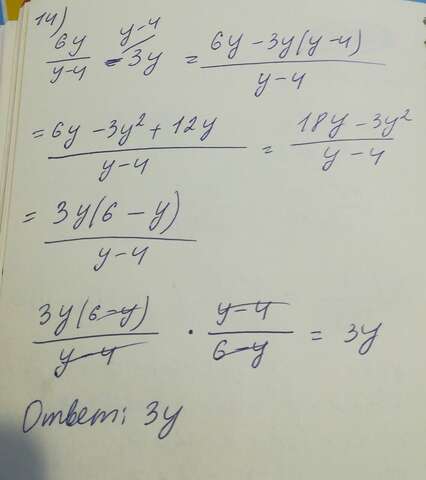 14)
6y/(y-4) - 3y^(y-4) = (6y - 3y(y-4))/(y-4)
= (6y - 3y² + 12y)/(y-4) = (18y - 3y²)/(y-4)
= 3y(6 - y)/(y-4)
3y(6-y)/(y-4) · (y-4)/(6-y) = 3y
Ответ: 3y